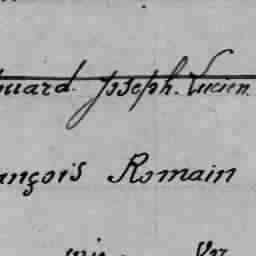 ouard. Joseph. Lucien.
ançois Romain